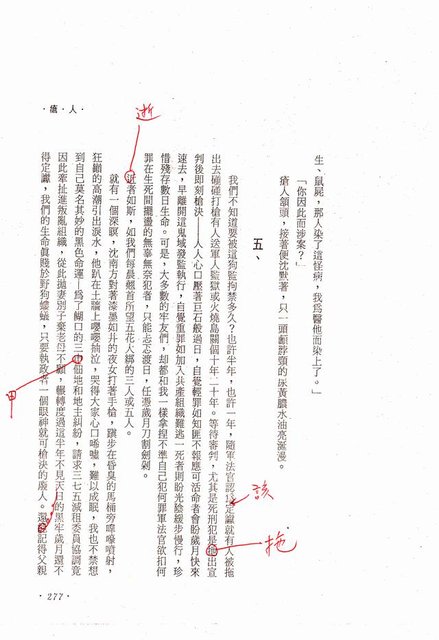 生、鼠屍，那人染了這怪病，我為醫他而染上了。」
「你因此而涉案？」
瘡人頷頭，接著便沈默著，只一頭顱脖頸的尿黃膿水油亮漫漫。
五、
我們不知道要被這狗監拘禁多久？也許半年，也許一年，隨軍法官認定讞就有人被拖
出去碰碰打槍有人送軍人監獄或火燒島關個十年二十年。等待審判，尤其是死刑犯是他出宣
判後即刻槍決——人人心口壓著巨石般過日，自覺輕罪如知匪不報應可活命者會盼歲月快來
速去，早離開這鬼域發監執行，自覺重罪如加入共產組織難逃一死者則盼光陰緩步慢行，珍
惜殘存數日生命。可是，大多數的牢友們，却都和我一樣拿捏不準自己犯何罪軍法官欲扣何
罪在生死間擺盪的無辜無奈犯者，只能忐忑渡日，任憑歲月刀割劍剁。
近者如斯，如我們每晨翹首所望五花大綁的三人或五人。
就有一個深暝，沈南方對著漆墨如井的夜女打著手槍，蹲步在昏臭的馬桶旁嚎嚎噴射，
狂繃的高潮引出淚水，他趴在土牆上嚶嚶抽泣，哭得大家心口唏噓，難以成眠，我也不禁想
到自己莫名其妙的黑色命運—為了餬口的三中個地和地主糾紛，請求三七五減租委員協調竟
因此牽扯進叛亂組織，從此拋妻別子棄老母不顧，輾轉度過這半年不見天日的黑牢歲月還不
得定讞，我們的生命真賤於野狗螻蟻，只要執政者一個眼神就可槍決的廢人。還記得父親
·瘡·人·
·277·
逝
甲
該
拖